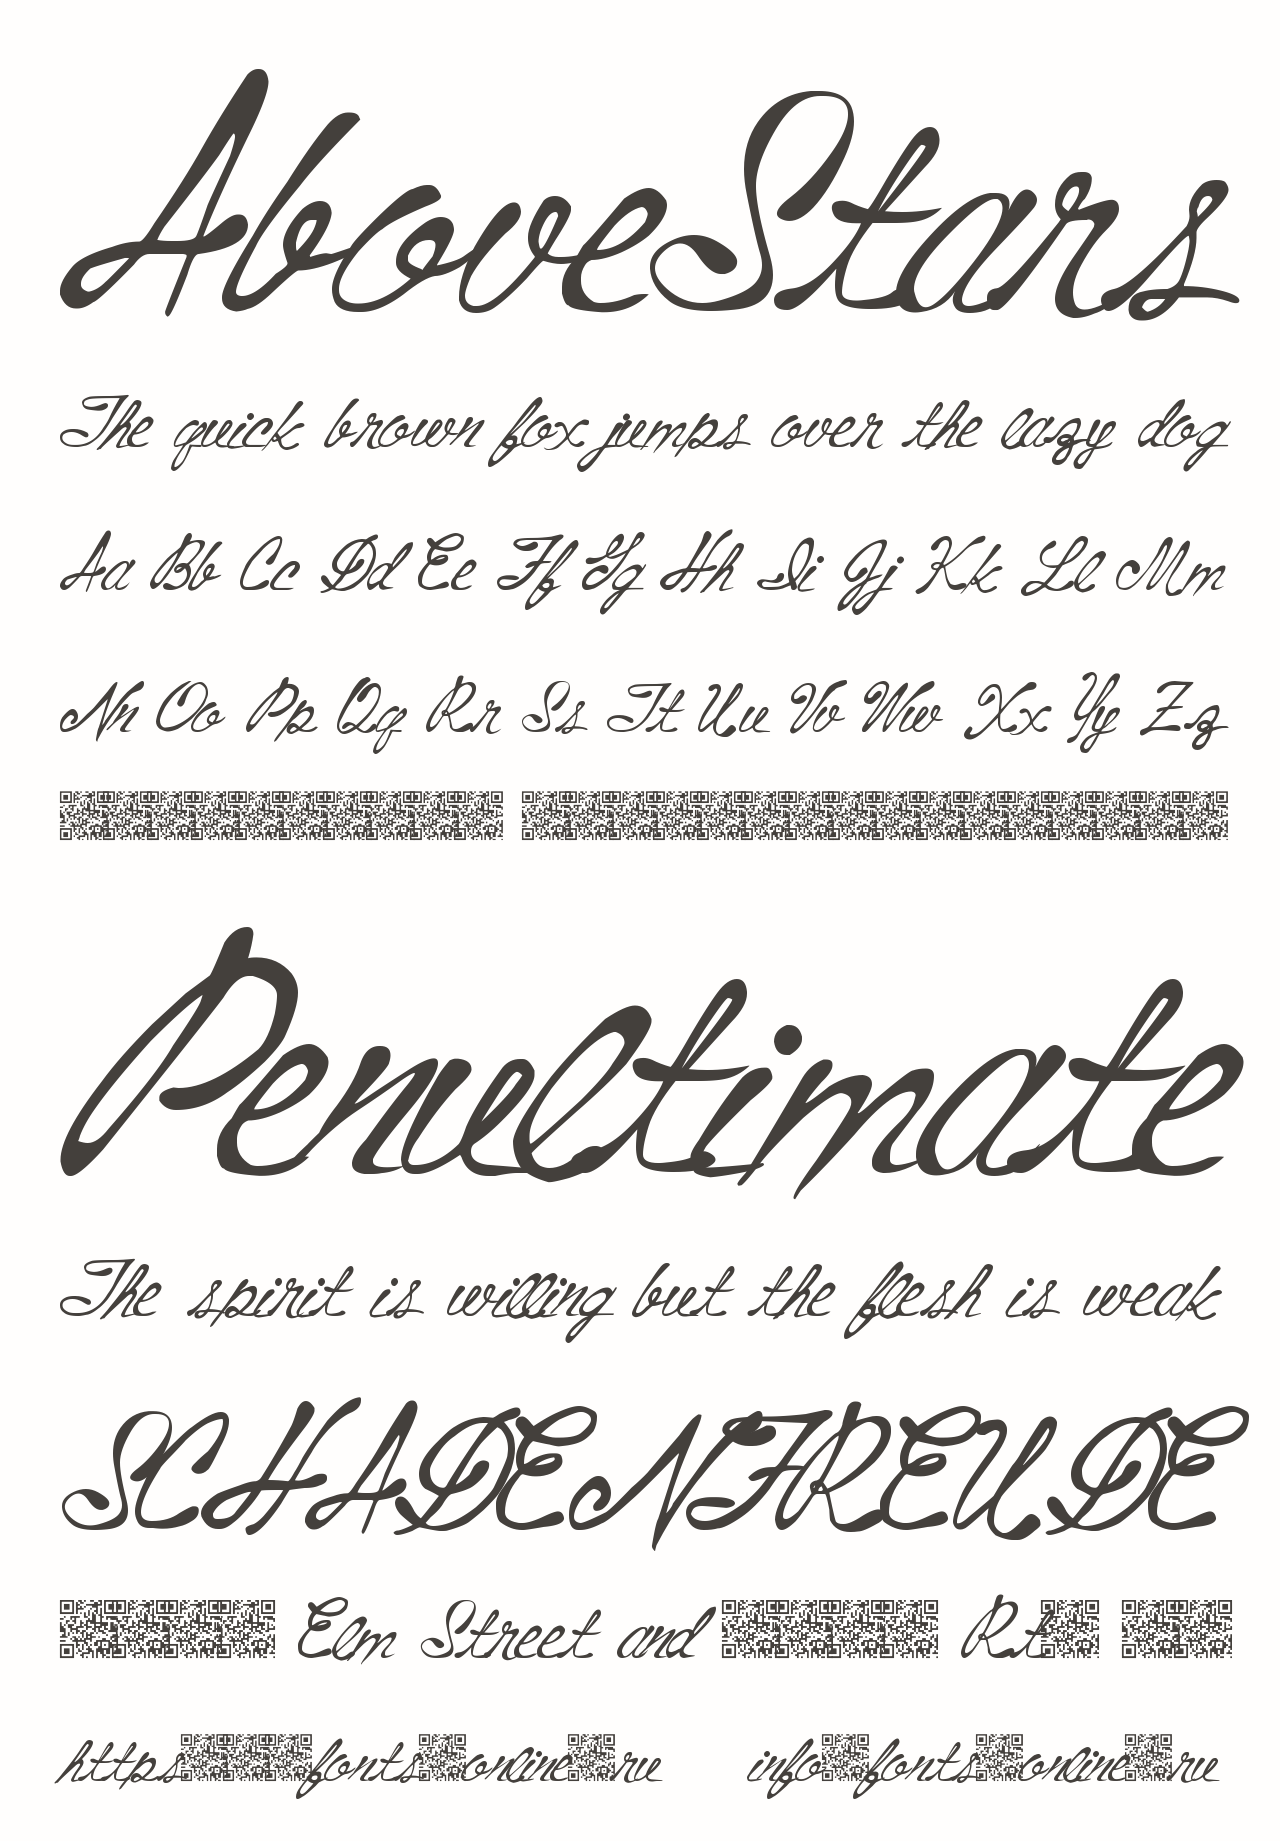 AboveStars
The quick brown fox jumps over the lazy dog
Aa Bb Cc Dd Ee Ff Gg Hh Ii Jj Kk Ll Mm
Nn Oo Pp Qq Rr Ss Tt Uu Vv Ww Xx Yy Zz
Penultimate
The spirit is willing but the flesh is weak
SCHADENFREUDE
Elm Street and Rt
https fonts online ru info fonts online ru